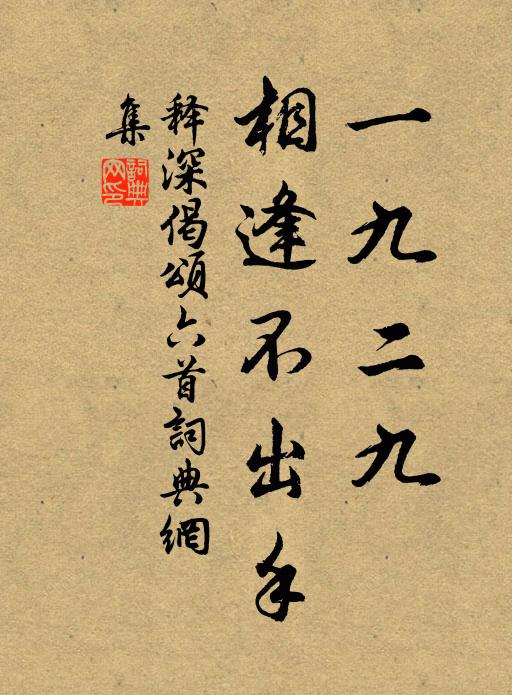 一九二九
相逢不出手
释深偈頌六首詞典網
集
詞典
网印